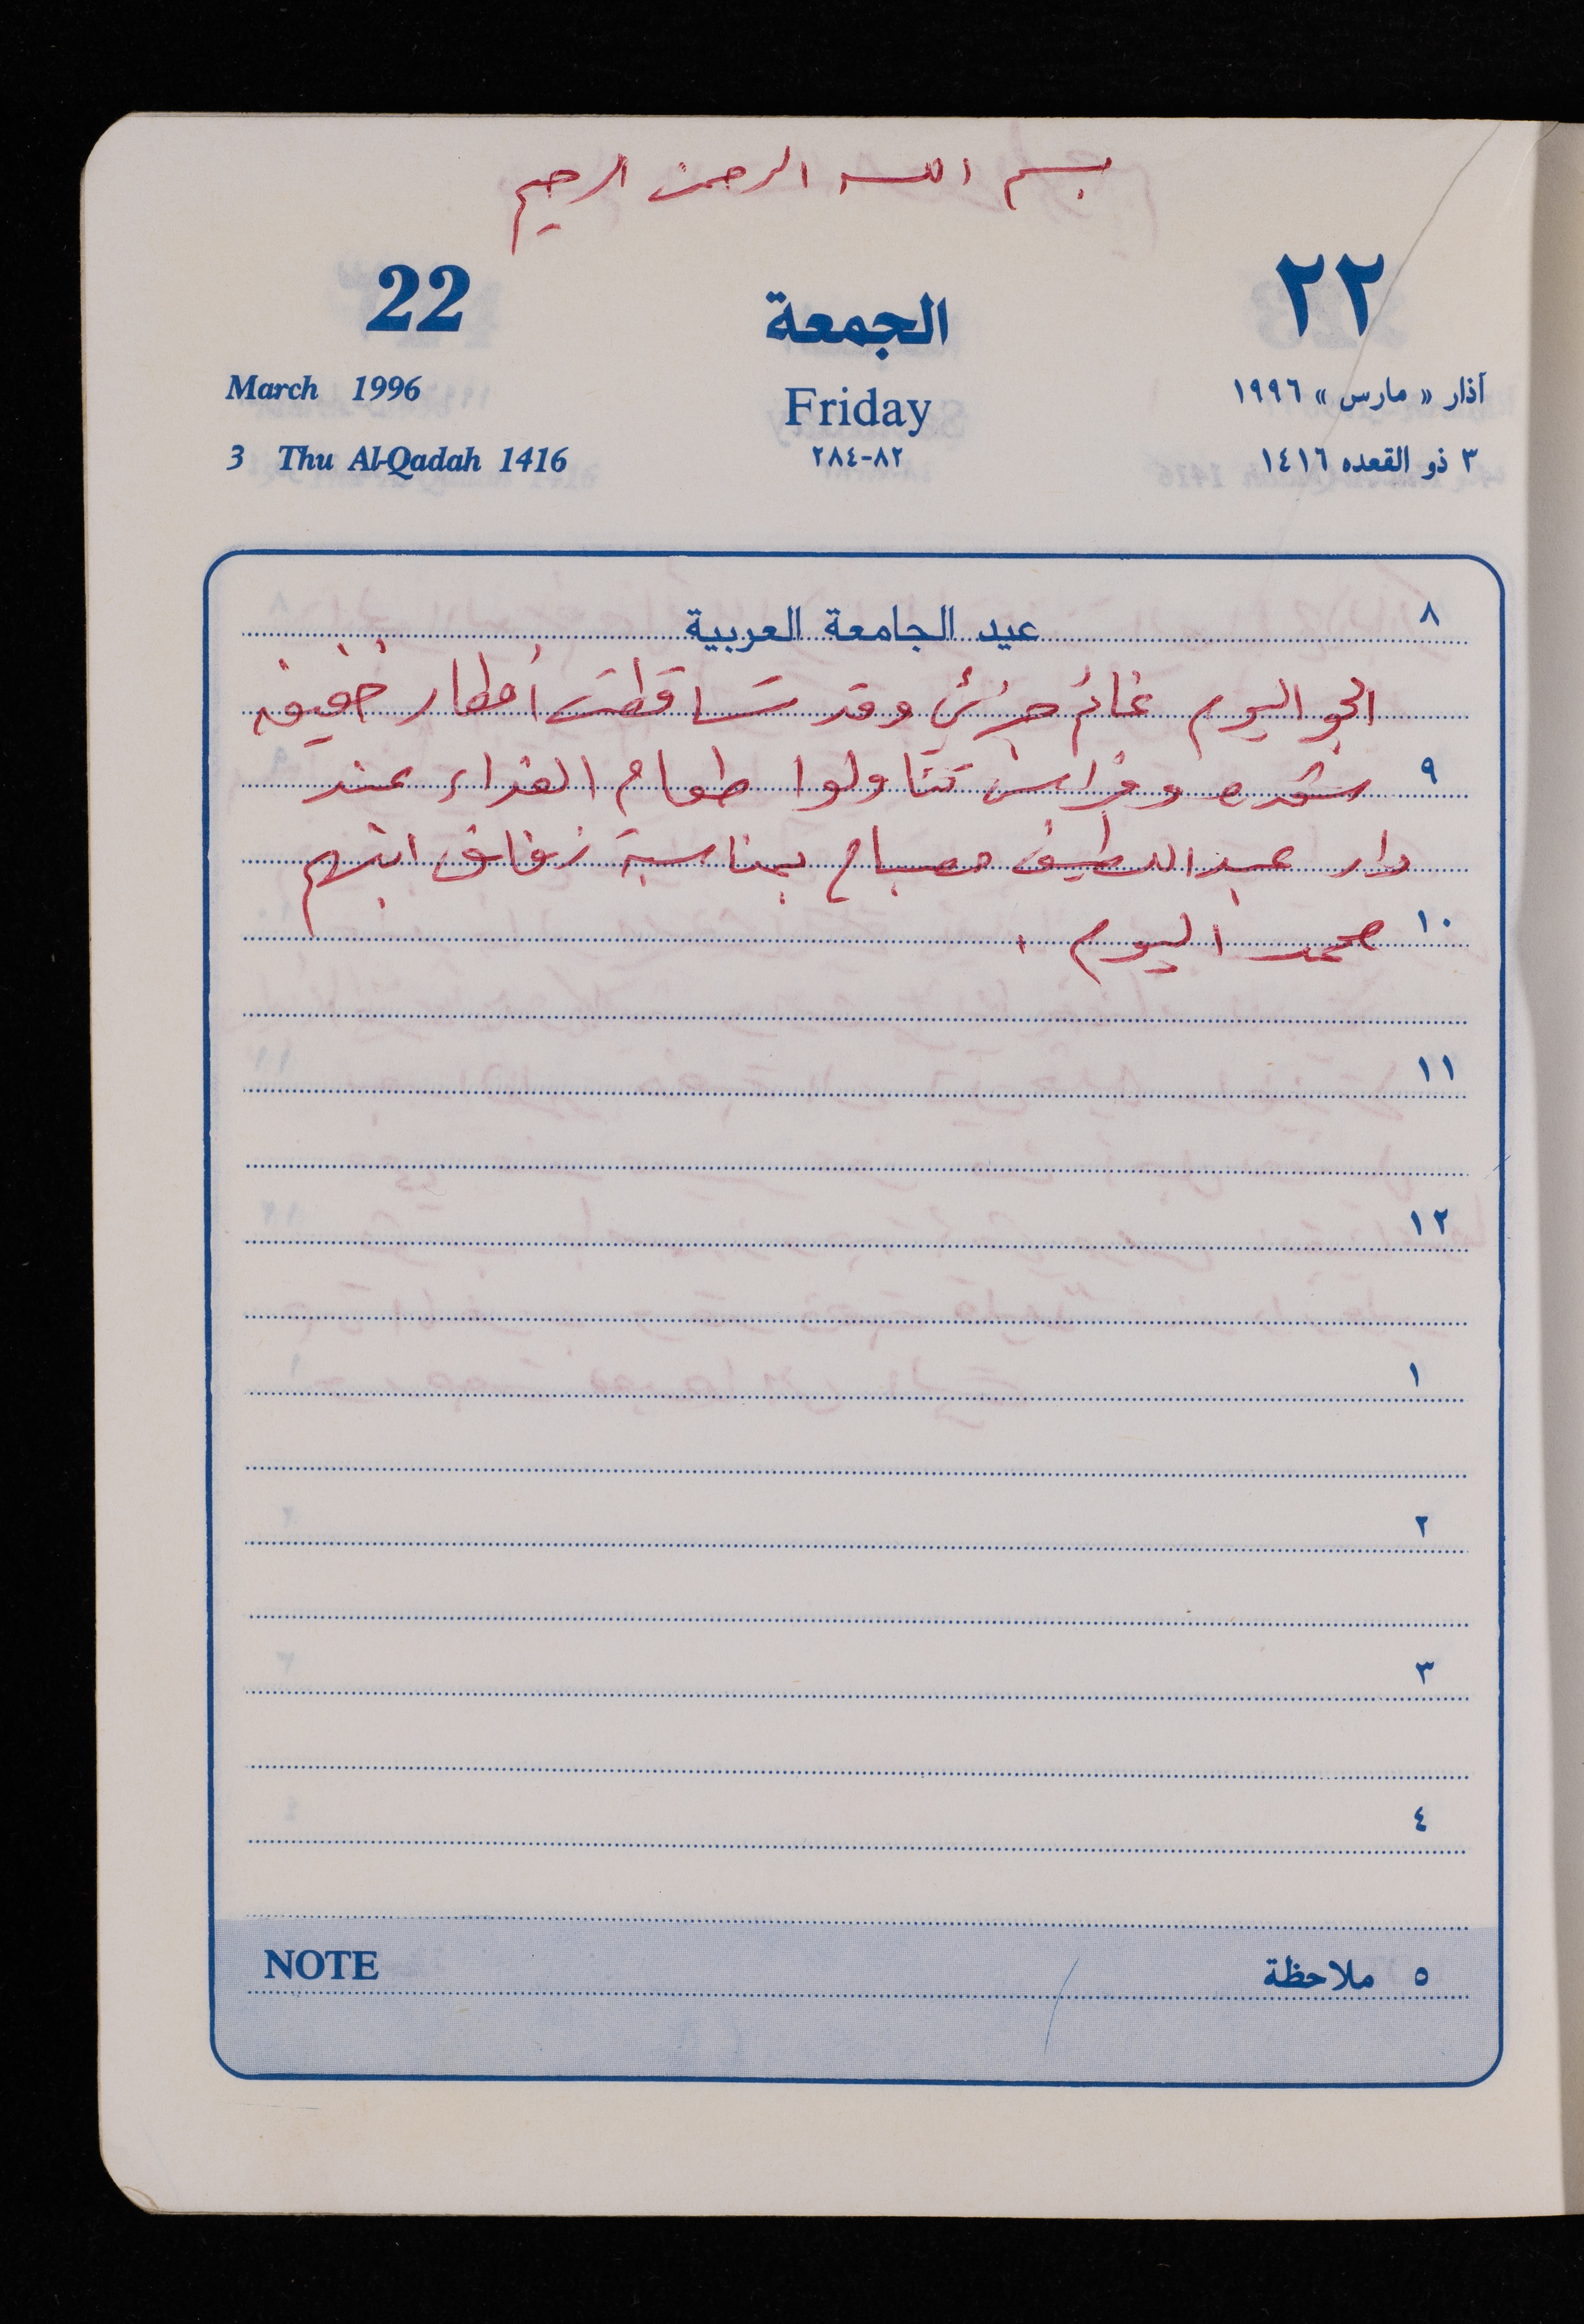 بسم الله الرحمن الرحيم
22 الجمعة ٢٢
March 1996 Friday آذار « مارس » ١٩٩٦
3 Thu Al-Qadah 1416 ٨٢-٢٨٤ ٣ ذو القعده ١٤١٦
٨ عيد الجامعة العربية
الجو اليوم غائم جزئي وقد تساقطت أمطار خفيفه
٩ وفراس تناولوا طعام الغداء عند
دار عبد اللطيف مصباح بمناسبة زفاف ابنهم
١٠ محمد اليوم .
١١
١٢
١
٢
٣
٤
NOTE ٥ ملاحظة